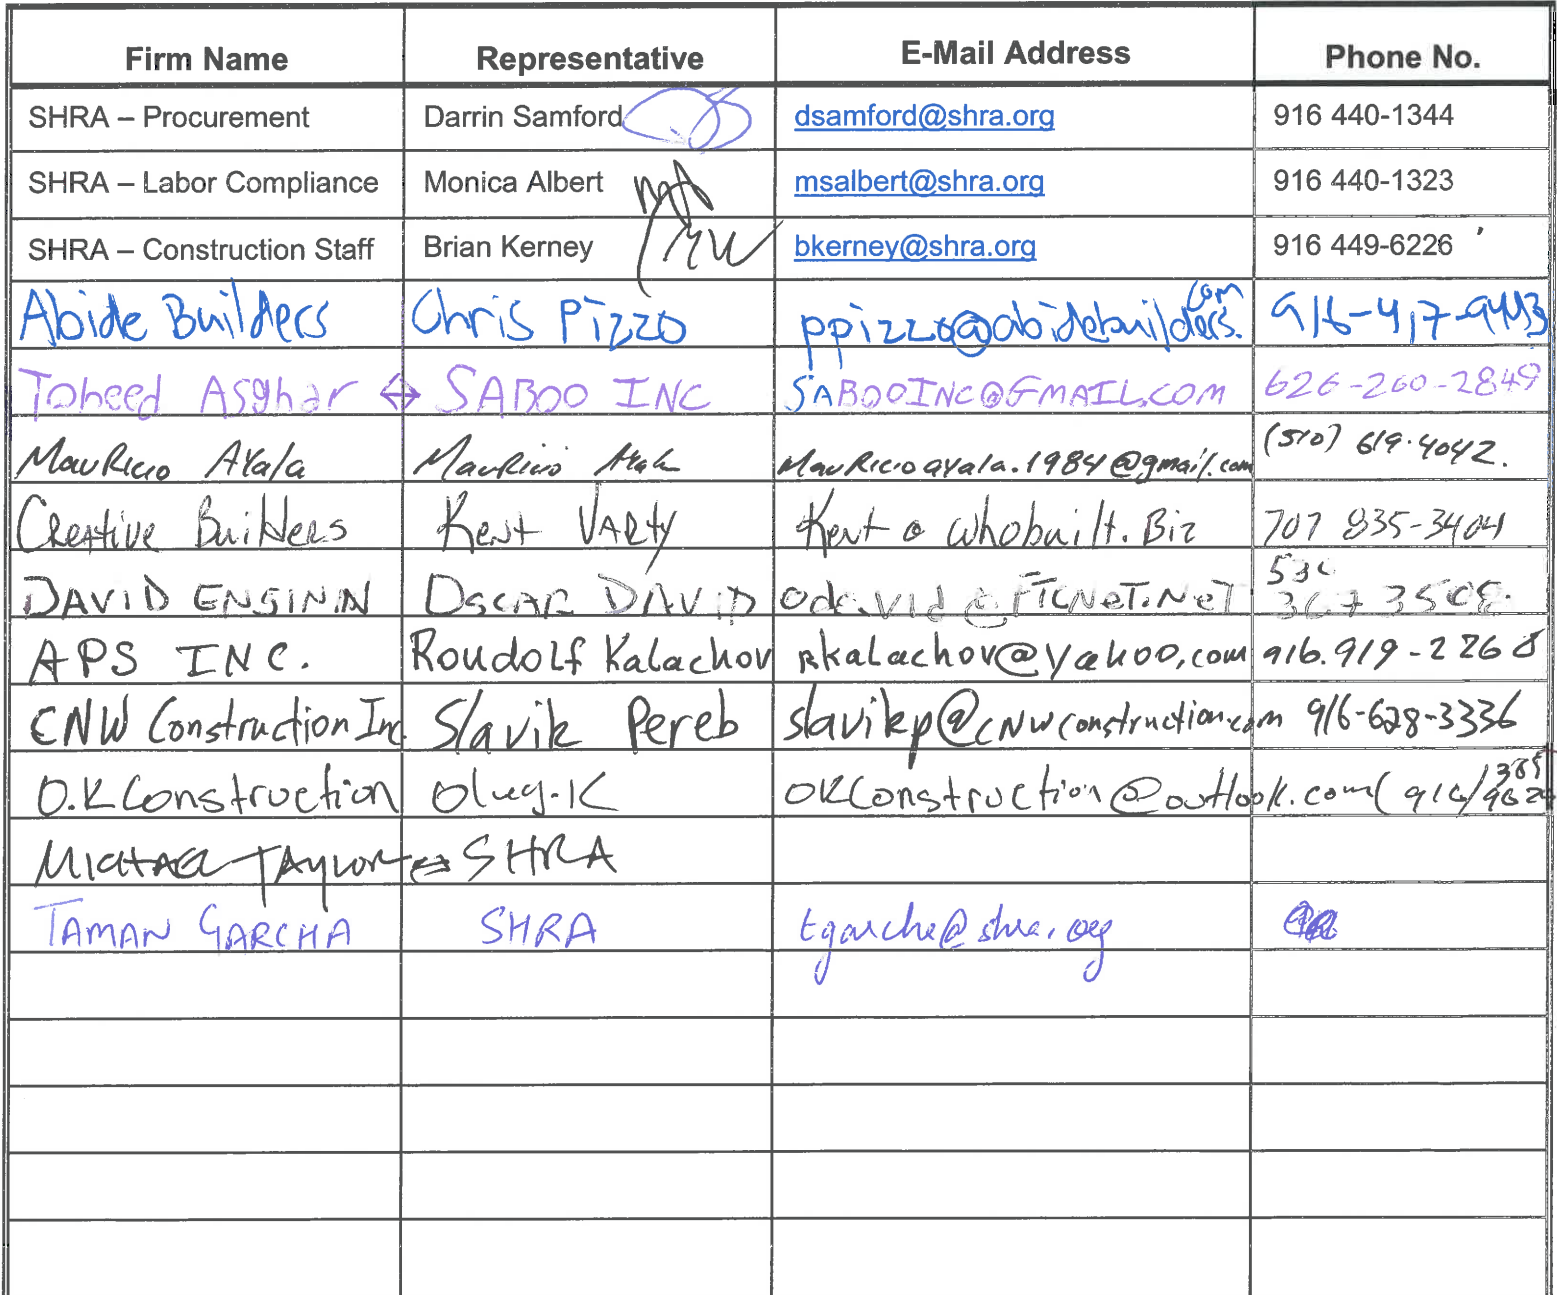 Firm Name Representative E-Mail Address Phone No.
SHRA – Procurement Darrin Samford dsamford@shra.org 916 440-1344
SHRA – Labor Compliance Monica Albert msalbert@shra.org 916 440-1323
SHRA – Construction Staff Brian Kerney bkerney@shra.org 916 449-6226
Abide Builders Chris Pizzo ppizzo@abidebuilders.com 916-417-9413
Toheed Asghar ↔ SABOO INC SABOOINC@GMAIL.COM 626-260-2849
Mauricio Ayala Mauricio Ayala Mauricioayala.1984@gmail.com (510) 619.4042.
Creative Builders Kent VARTY Kent @ whobuilt.Biz 707 835-3404
DAVID ENGININ OSCAR DAVID odavid@FTCNET.NET 530 367 3508
APS INC. Roudolf Kalachov Rkalachov@yahoo.com 916.919-2268
CNW Construction Inc Slavik Pereb slavikp@CNWconstruction.com 916-628-3336
O.K Construction Oleg.K OKConstruction@outlook.com (916)
Michael TAYLOR ↔ SHRA
TAMAN GARCHA SHRA tgarcha@shra.org